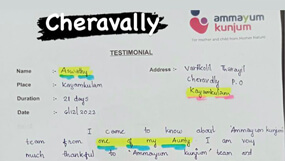 Cheravally
ammayum
kunjum
For Mother and Child from Woman Makers
TESTIMONIAL
Name :- Aswathy
Address :- Varikolil Tharayil
Place :- Kayamkulam
Cheravally P.O
Duration :- 21 days
Kayamkulam
Date :- 6/12/2022
I came to know about Ammayum kunjum
team from one of my Aunty I am very
much thankful to "Ammayum kunjum" team and